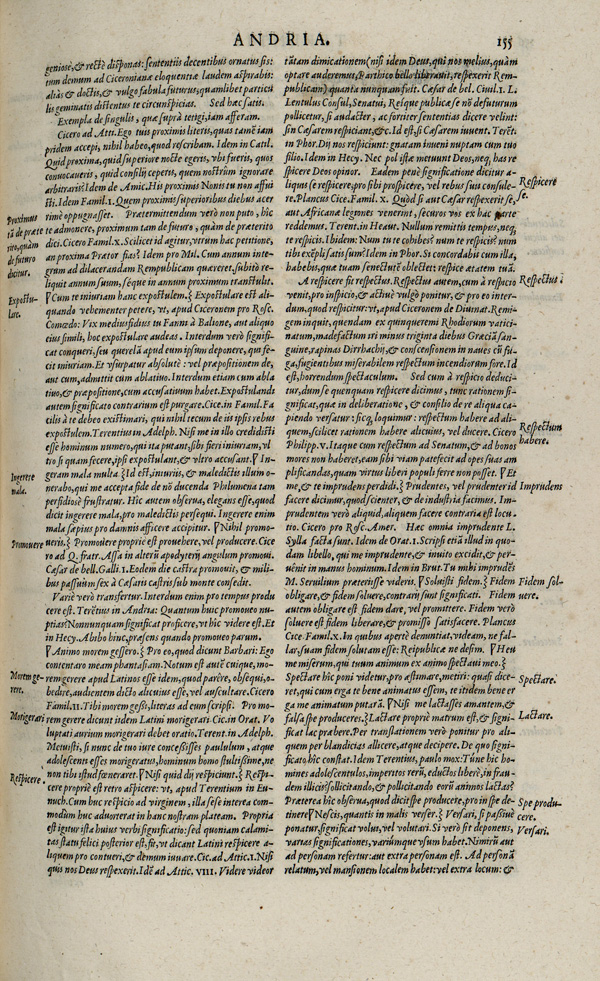 ANDRIA. 155
geniose, & rectè disponat: sententiis decentibus ornatus sit:
tum demum ad Ciceronianæ eloquentiæ laudem aspirabis:
aliàs & doctis, & vulgo fabula futurus, quamlibet particu
lis geminatis distentus te circunspicias. Sed hæc satis.
Exempla de singulis, quæ suprà tetigi, iam afferam.
Cicero ad Atti. Ego tuis proximis literis, quas tamē iam
pridem accepi, nihil habeo, quod rescribam. Idem in Catil.
Quid proxima, quid superiore nocte egeris, vbi fueris, quos
conuocaueris, quid consilij ceperis, quem nostrûm ignorare
arbitraris? Idem de Amic. His proximis Nonis tu non affui
sti. Idem Famil. 1. Quem proximis superioribus diebus acer
rimè oppugnasset. Prætermittendum verò non puto, hîc
te admonere, proximum tam de futuro, quàm de præterito
dici. Cicero Famil. x. Scilicet id agitur, vtrum hac petitione,
an proxima Prætor fias? Idem pro Mil. Cum annum inte-
grum ad dilacerandam Rempublicam quæreret, subitò re-
liquit annum suum, séque in annum proximum transtulit.
Cum te iniuriam hanc expostulem. Expostulare est ali-
quando vehementer petere, vt, apud Ciceronem pro Rosc.
Comœdo: Vix mediusfidius tu Fanni à Balione, aut aliquo
eius simili, hoc expostulare audeas. Interdum verò signifi-
cat conqueri, seu querelā apud eum ipsum deponere, qui fe-
cit iniuriam. Et vsurpatur absolutè: vel præpositionem de,
aut cum, admittit cum ablatiuo. Interdum etiam cum abla
tiuo, & præpositione, cum accusatiuum habet. Expostulandi
autem significato contrarium est purgare. Cice. in Famil. Fa
cilis à te debeo existimari, qui nihil tecum de iis ipsis rebus
expostulem. Terentius in Adelph. Nisi me in illo credidisti
esse hominum numero, qui ita putant, sibi fieri iniuriam, vl
tro si quam fecere, ipsi expostulant, & vltro accusant. In-
geram mala multa. Id est, iniuriis, & maledictis illum o-
nerabo, qui me accepta fide de nō ducenda Philumena tam
perfidiosè frustratur. Hîc autem obserua, elegans esse, quod
dicit ingerere mala, pro maledictis persequi. Ingerere enim
mala sæpius pro damnis afferre accipitur. Nihil promo-
ueris. Promouere propriè est prouehere, vel producere. Cice
ro ad Q. fratr. Assa in alterū apodyterij angulum promoui.
Cæsar de bell. Galli. 1. Eodem die castra promouit, & mili-
bus passuum sex à Cæsaris castris sub monte consedit.
Variè verò transfertur. Interdum enim pro tempus produ
cere est. Terētius in Andria: Quantum huic promoueo nu-
ptias? Nonnunquam significat proficere, vt hîc videre est. Et
in Hecy. Abibo hinc, præsens quando promoueo parum.
Animo morem gessero. Pro eo, quod dicunt Barbari: Ego
contentaro meam phantasiam. Notum est autē cuique, mo-
rem gerere apud Latinos esse idem, quod parêre, obsequi, o-
bedire, audientem dicto alicuius esse, vel auscultare. Cicero
Famil. 11. Tibi morem gessi, literas ad eum scripsi. Pro mo-
rem gerere dicunt iidem Latini morigerari. Cic. in Orat. Vo
luptati aurium morigerari debet oratio. Terent. in Adelph.
Metuisti, si nunc de tuo iure concessisses paululum, atque
adolescenti esses morigeratus, hominum homo stultissime, ne
non tibi istud fœneraret. Nisi quid dij respiciunt. Respi-
cere propriè est retro aspicere: vt, apud Terentium in Eu-
nuch. Cum huc respicio ad virginem, illa sese interea com-
modùm huc aduorterat in hanc nostram plateam. Propria
est igitur ista huius verbi significatio: sed quoniam calami-
tas statu felici posterior est, fit, vt dicant Latini respicere a-
liquem pro contueri, & demum iuuare. Cic. ad Attic. 1. Nisi
quis nos Deus respexerit. Idē ad Attic. VIII. Videre videor
Proximus
tā de præte
rito, quàm
de futuro
dicitur.
Expostu-
lare.
Ingerere
mala.
Promouere
Morem ge-
rere.
Morigerari
Respicere
tātam dimicationem (nisi idem Deus, qui nos melius, quàm
optare auderemus, Parthico bello liberauit, respexerit Rem-
publicam) quanta nunquam fuit. Cæsar de bel. Ciuil. 1. L.
Lentulus Consul, Senatui, Reíque publicæ se nō defuturum
pollicetur, si audacter, ac fortiter sententias dicere velint:
sin Cæsarem respiciant, &c. Id est, si Cæsarem iuuent. Terēt.
in Phor. Dij nos respiciunt: gnatam inueni nuptam cum tuo
filio. Idem in Hecy. Nec pol istæ metuunt Deos, neq; has re
spicere Deos opinor. Eadem penè significatione dicitur a-
liquis se respicere, pro sibi prospicere, vel rebus suis consule-
re. Plancus Cice. Famil. x. Quòd si aut Cæsar respexerit se,
aut Africanæ legiones venerint, securos vos ex hac parte
reddemus. Terent. in Heaut. Nullum remittis tempus, neq;
te respicis. Ibidem: Num tu te cohibes? num te respicis? num
tibi explēs satis sum? Idem in Phor. Si concordabis cum illa,
habebis, quæ tuam senectutē oblectet: respice ætatem tuā.
A respicere fit respectus. Respectus autem, cum à respicio
venit, pro inspicio, & actiuè vulgò ponitur, & pro eo inter-
dum, quod respicitur: vt, apud Ciceronem de Diuinat. Remi-
gem inquit, quendam ex quinqueremi Rhodiorum vatici-
natum, madefactum iri minus triginta diebus Græciā san-
guine, rapinas Dirrhachij, & conscensionem in naues cū fu-
ga, fugientibus miserabilem respectum incendiorum fore. Id
est, horrendum spectaculum. Sed cùm à respicio deduci-
tur, dum se quenquam respicere dicimus, hinc rationem si-
gnificat, quæ in deliberatione, & consilio de re aliqua ca-
pienda versatur: sicq; loquimur: respectum habere ad ali-
quem, scilicet rationem habere alicuius, vel ducere. Cicero
Philipp. v. Itaque cum respectum ad Senatum, & ad bonos
mores non haberet, eam sibi viam patefecit ad opes suas am
plificandas, quam virtus liberi populi ferre non posset. Et
me, & te imprudens perdidi. Prudentes, vel prudenter id
facere dicimur, quod scienter, & de industria facimus. Im-
prudentem verò aliquid, aliquem facere contraria est locu-
tio. Cicero pro Rosc. Amer. Hæc omnia imprudente L.
Sylla facta sunt. Idem de Orat. 1. Scripsi etiā illud in quo-
dam libello, qui me imprudente, & inuito excidit, & per-
uênit in manus hominum. Idem in Brut. Tu mihi imprudēs
M. Seruilium præteriisse videris. Soluisti fidem. Fidem
obligare, & fidem soluere, contrarij sunt significati. Fidem
autem obligare est fidem dare, vel promittere. Fidem verò
soluere est fidem liberare, & promisso satisfacere. Plancus
Cice. Famil. x. In quibus apertè denuntiat, videam, ne fal-
lar, suam fidem solutam esse: Reipublicæ ne desim. Heu
me miserum, qui tuum animum ex animo spectaui meo.
Spectare hîc poni videtur, pro æstimare, metiri: quasi dice-
ret, qui cum erga te bene animatus essem, te itidem bene er
ga me animatum putarā. Nisi me lactasses amantem, &
falsa spe produceres. Lactare propriè matrum est, & signi-
ficat lac præbere. Per translationem verò ponitur pro ali-
quem per blandicias allicere, atque decipere. De quo signi-
ficato hîc constat. Idem Terentius, paulo mox: Túne hîc ho-
mines adolescentulos, imperitos rerū, eductos liberè, in frau-
dem illicis? sollicitando, & pollicitando eorū animos lactas?
Præterea hîc obserua, quod dicit spe producere, pro in spe de-
tinere. Nescis, quantis in malis verser. Versari, si passiuè
ponatur, significat volui, vel volutari. Si verò sit deponens,
varias significationes, variúmque vsum habet. Nimirū aut
ad personam refertur: aut extra personam est. Ad personā
relatum, vel mansionem localem habet: vel extra locum: &
Respicere
se.
Respectus.
Respectum
habere.
Imprudens
Fidem sol-
uere.
Spectare.
Lactare.
Spe produ-
cere.
Versari.